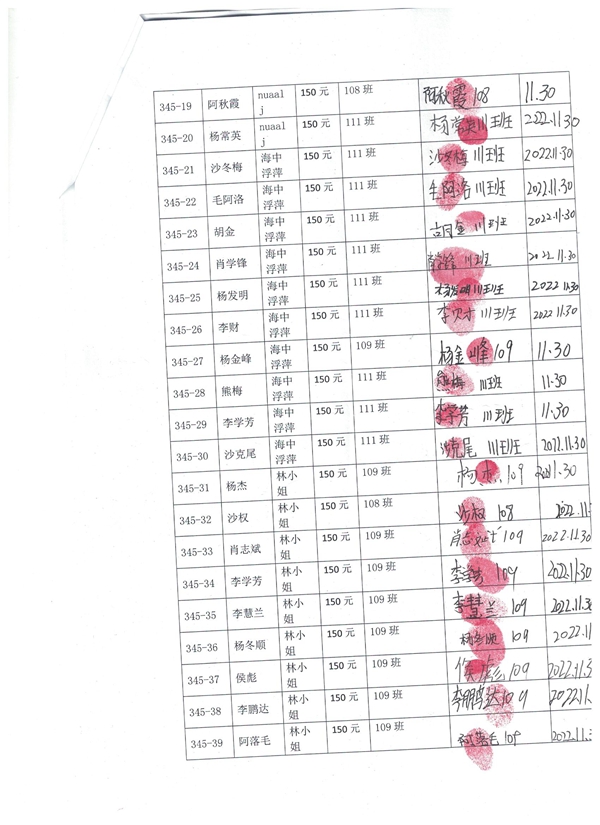 345-19 阿秋霞 nuaal 150 元 108 班 阿秋霞 108 11.30
j
345-20 杨常英 nuaal 150 元 111 班 杨常英 111班 2022.11.30
j
345-21 沙冬梅 海中 150 元 111 班 沙冬梅 111班 2022.11.30
浮萍
345-22 毛阿洛 海中 150 元 111 班 毛阿洛 111班 2022.11.30
浮萍
345-23 胡金 海中 150 元 111 班 胡金 111班 2022.11.30
浮萍
345-24 肖学锋 海中 150 元 111 班 肖学锋 111班 2022 11.30
浮萍
345-25 杨发明 海中 150 元 111 班 杨发明 111班 2022 11.30
浮萍
345-26 李财 海中 150 元 111 班 李财 111班 2022 11.30
浮萍
345-27 杨金峰 海中 150 元 109 班 杨金峰 109 11.30
浮萍
345-28 熊梅 海中 150 元 111 班 熊梅 111班 11.30
浮萍
345-29 李学芳 海中 150 元 111 班 李学芳 111班 11.30
浮萍
345-30 沙克尾 海中 150 元 111 班 沙克尾 111班 2022.11.30
浮萍
345-31 杨杰 林小 150 元 109 班 杨杰 109 2021.30
姐
345-32 沙权 林小 150 元 108 班 沙权 108 2022.11.
姐
345-33 肖志斌 林小 150 元 109 班 肖志斌 109 2022.11.30
姐
345-34 李学芳 林小 150 元 109 班 李学芳 109 2022.11.30
姐
345-35 李慧兰 林小 150 元 109 班 李慧兰 109 2022.11.30
姐
345-36 杨冬顺 林小 150 元 109 班 杨冬顺 109 2022.11
姐
345-37 侯彪 林小 150 元 109 班 侯彪 109 2022.11.3
姐
345-38 李鹏达 林小 150 元 109 班 李鹏达 109 2022.11.
姐
345-39 阿落毛 林小 150 元 109 班 阿落毛 109 2022.11.3
姐